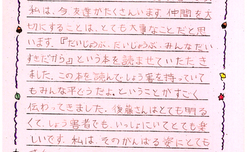 私は、今友達がたくさんいます。仲間を大
切にすることは、とても大事なことだと思
います。『だいじょうぶ、だいじょうぶ、みんなだい
すきだから』という本を読ませていただき
ました。この本を読んでしょう害を持っていて
もみんな平とうだよ。ということがすごく
伝わってきました。後藤さんはとても明る
くて、しょう害者でも、いっしょにいてとても楽
しいです。私は、そのがんばる姿にとても